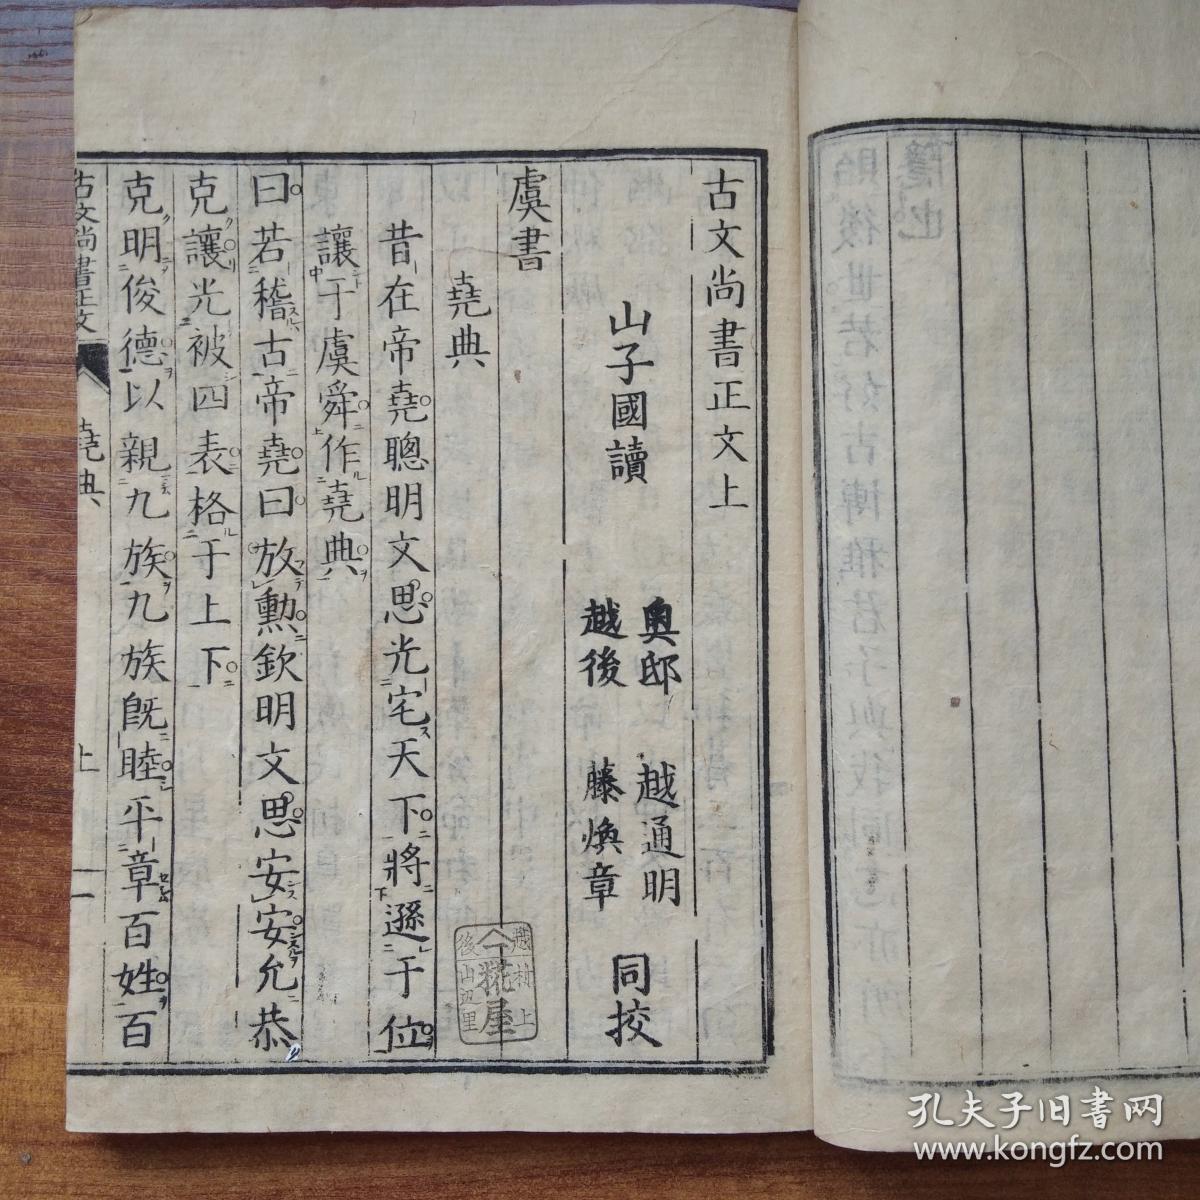 古文尚書正文上
山子國讀
奧邸 越通明
越後 藤煥章
同挍
虞書
堯典
昔在帝堯聰明文思光宅天下將遜于位
讓于虞舜作堯典
曰若稽古帝堯曰放勳欽明文思安安允恭
克讓光被四表格于上下
克明俊德以親九族九族既睦平章百姓百
古文尚書正文
堯典
上
一
越
村上
糀屋
後山辺里
孔夫子旧书网
www.kongfz.com